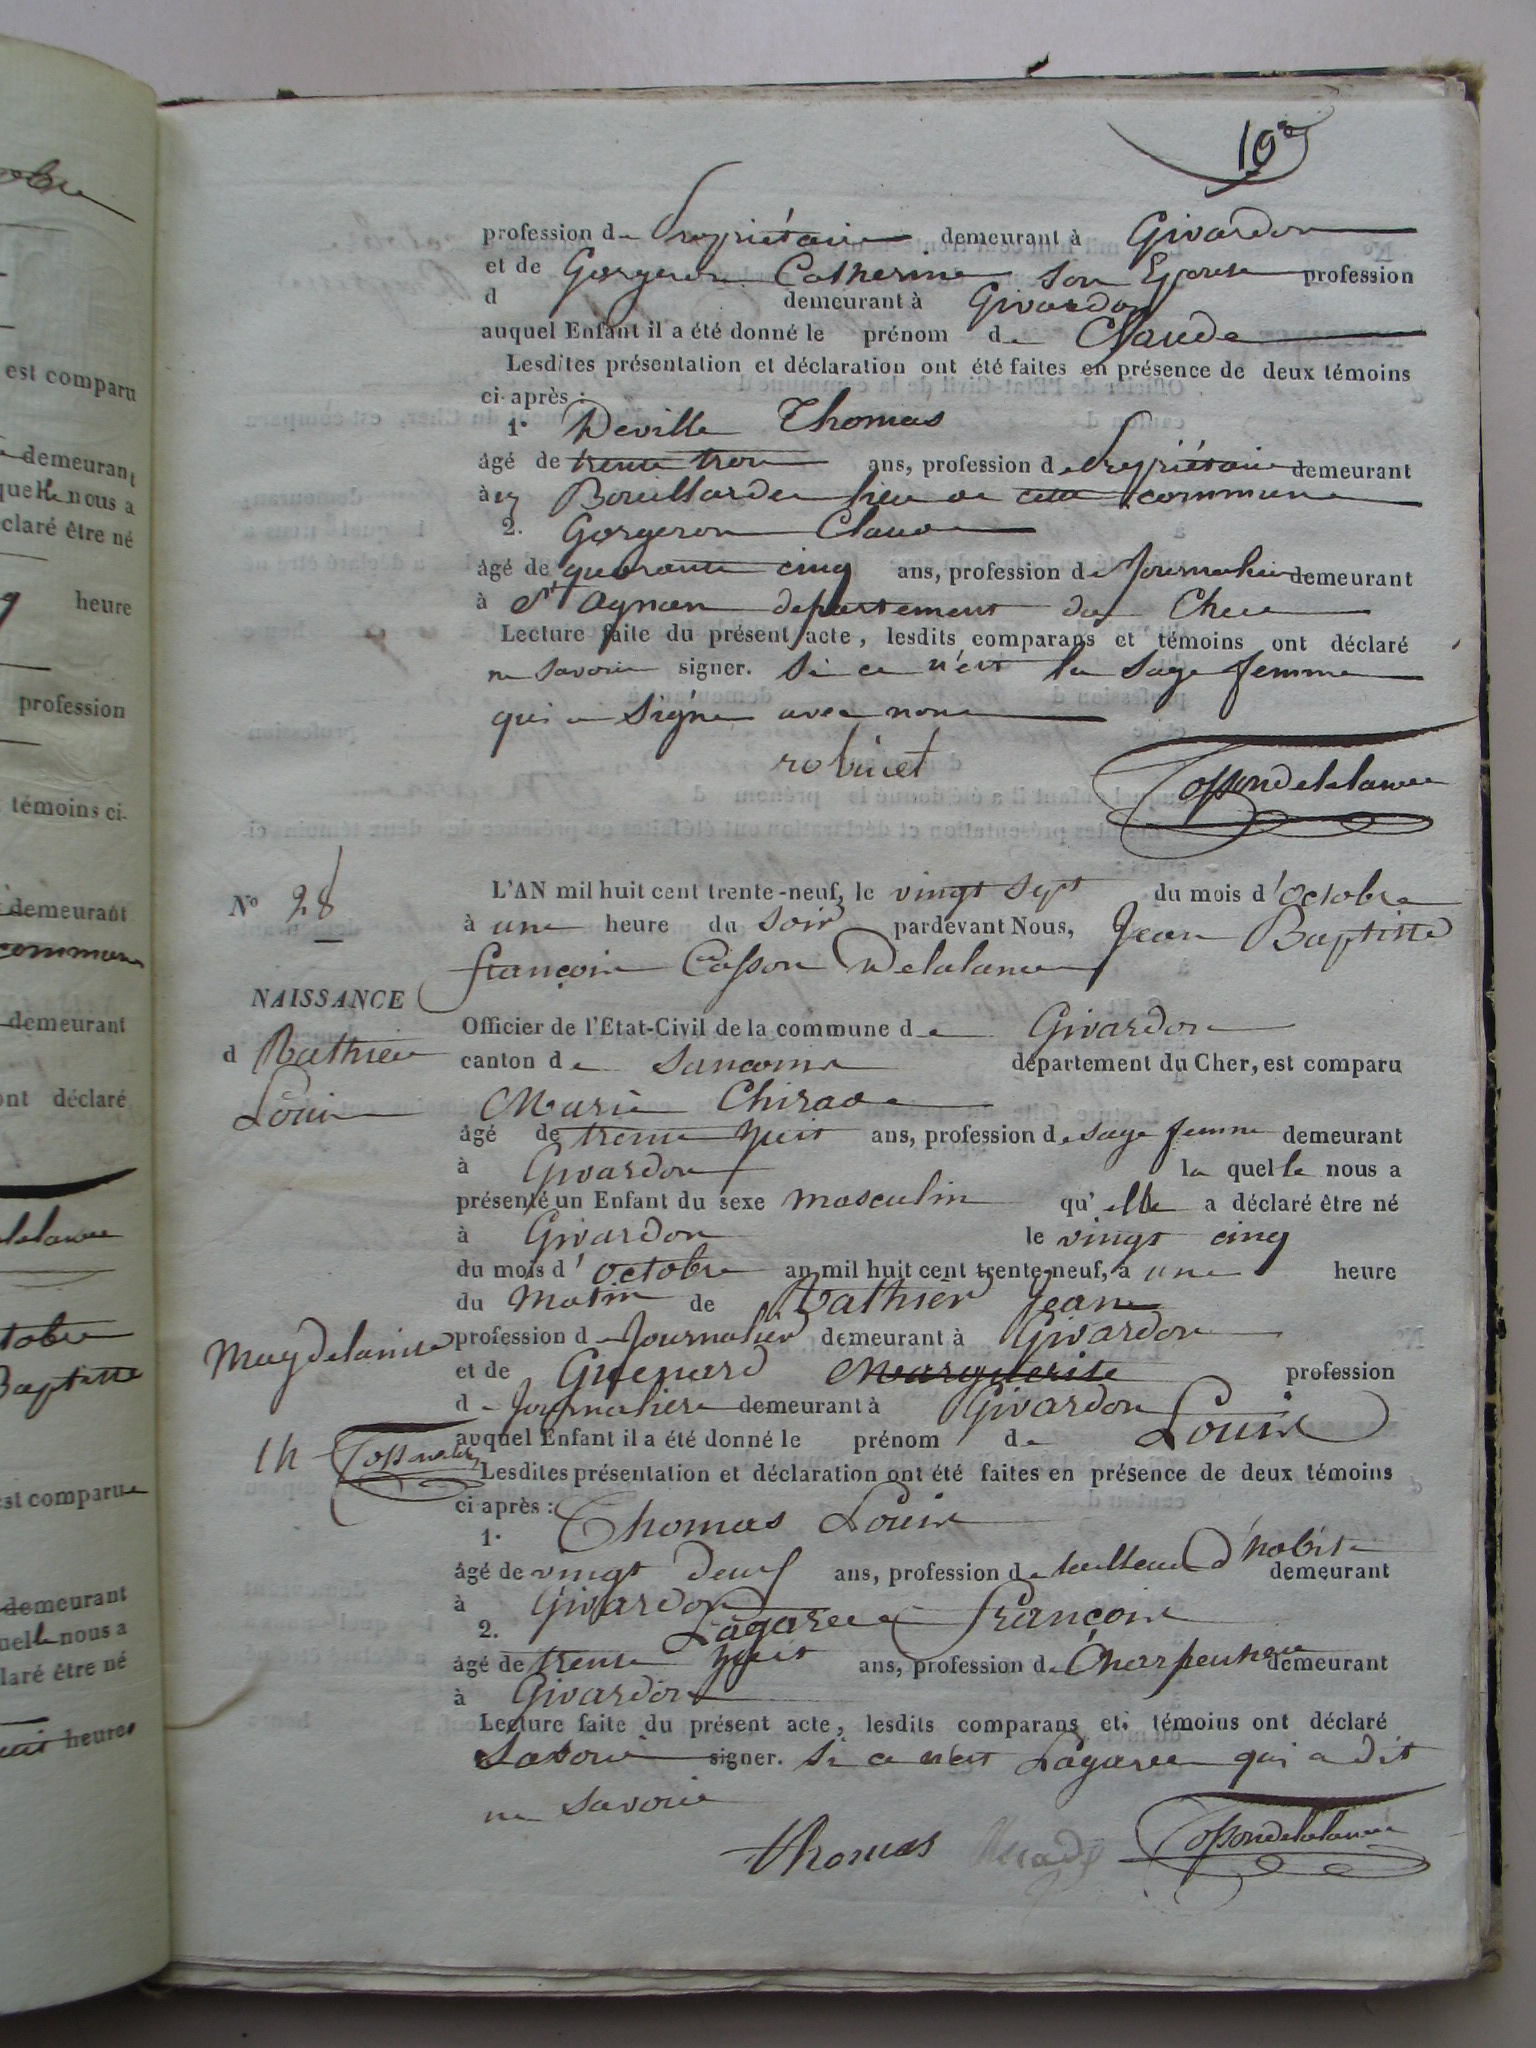 10
profession de Propriétaire demeurant à Givardon
et de Gorgeron Catherine son Epouse profession
d demeurant à Givardon
auquel Enfant il a été donné le prénom de Claude
Lesdites présentation et déclaration ont été faites en présence de deux témoins
ci-après :
1° Deville Thomas
âgé de trente trois ans, profession de Propriétaire demeurant
à Bouillarde lieu de cette commune
2. Gorgeron Claude
âgé de quarante cinq ans, profession de Journalier demeurant
à St Agnan departement du Cher
Lecture faite du présent acte, lesdits comparans et témoins ont déclaré
ne savoir signer. Si ce n'est la sage femme
qui a signé avec nous
robinet
Cossondelalance
N° 28
L'AN mil huit cent trente-neuf, le vingt sept du mois d'octobre
à une heure du Soir pardevant Nous, Jean Baptiste
françois Cosson Delalance
NAISSANCE
Officier de l'Etat-Civil de la commune de Givardon
d Rathier
canton de Sancoins département du Cher, est comparu
Louis
Marie Chirade
âgé de trente huit ans, profession de sage femme demeurant
à Givardon la quelle nous a
présenté un Enfant du sexe masculin qu'elle a déclaré être né
à Givardon le vingt cinq
du mois d'octobre an mil huit cent trente-neuf, à une heure
du Matin de Rathier Jean
profession de Journalier demeurant à Givardon
Magdelaine
et de Guenard Marguerite profession
de Journaliere demeurant à Givardon
auquel Enfant il a été donné le prénom de Louis
th
Lesdites présentation et déclaration ont été faites en présence de deux témoins
ci après :
1° Thomas Louis
âgé de vingt deux ans, profession de tailleur d'habits demeurant
à Givardon
2. Lagarde françois
âgé de trente huit ans, profession de Charpentier demeurant
à Givardon
Lecture faite du présent acte, lesdits comparans et témoins ont déclaré
Savoir signer. Si ce n'est Lagarde qui a dit
ne Savoir
thomas Cossondelalance